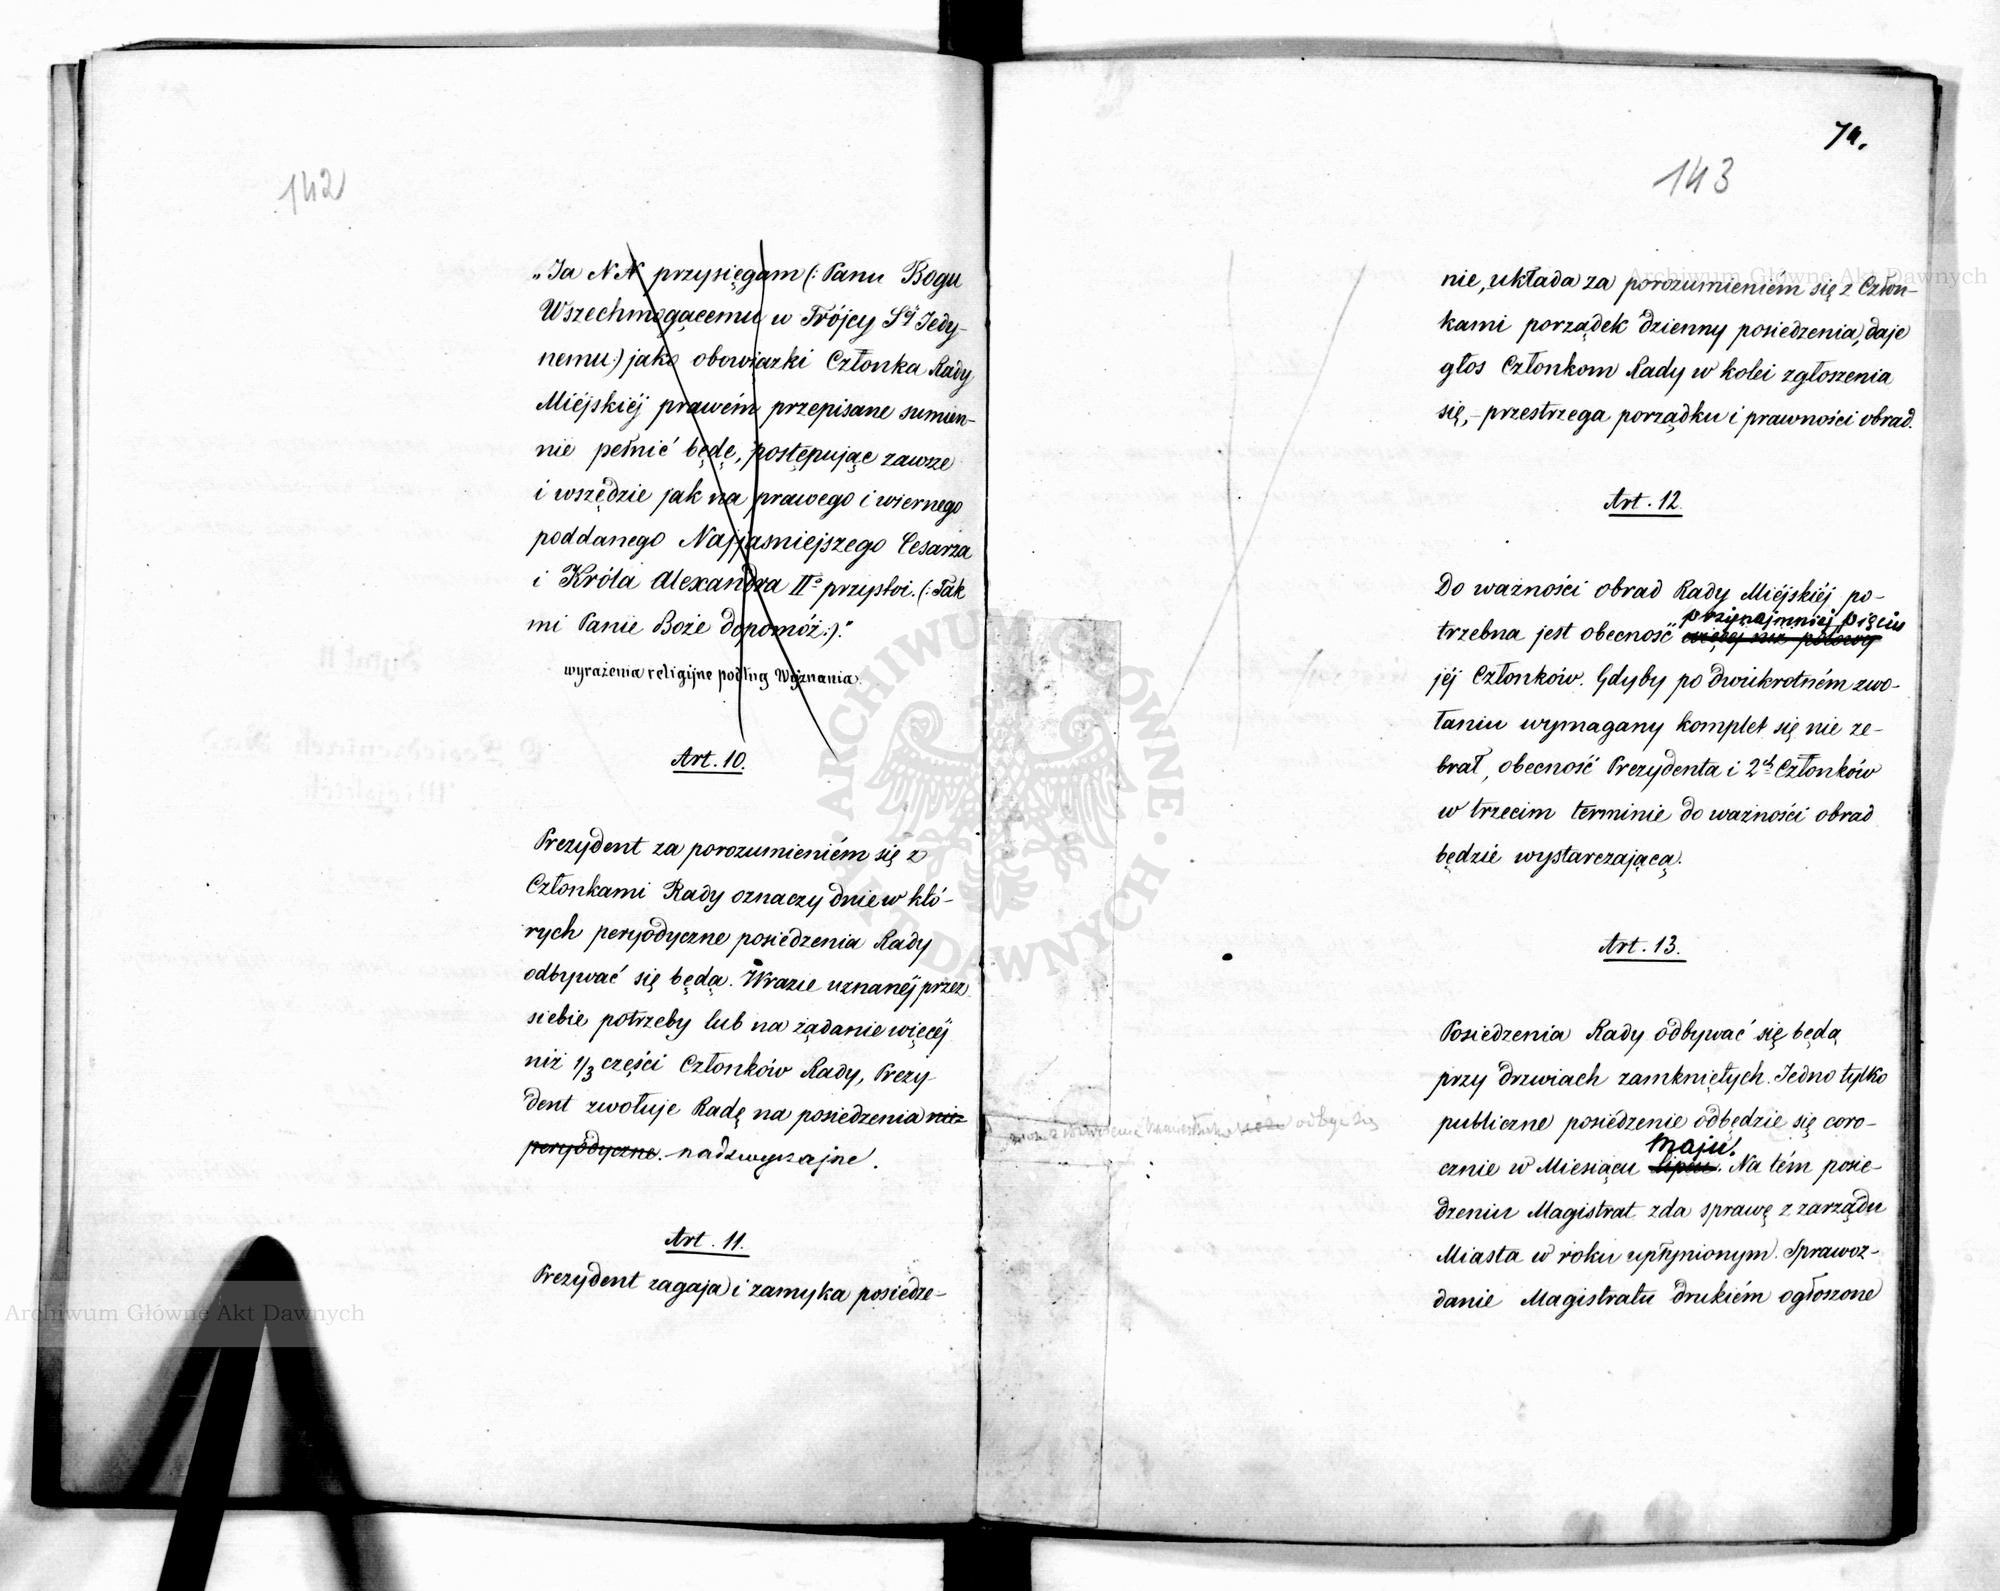 142
„Ja NN przysięgam (: Panu Bogu
Wszechmogącemu w Trójcy Sej Jedy-
nemu:) jako obowiązki Członka Rady
Miéjskiéj prawém przepisane sumien-
nie pełnić będę, postępując zawsze
i wszędzie jak na prawego i wiernego
poddanego Najjaśniejszego Cesarza
i Króla Alexandra IIo przystoi. (: Tak
mi Panie Boże dopomóż :)."
wyrażenia religijne podług Wyznania.
Art. 10.
Prezydent za porozumieniém się z
Członkami Rady oznaczy dnie w któ-
rych peryodyczne posiedzenia Rady
odbywać się będą. Wrazie uznanéj przez
siebie potrzeby lub na żądanie więcéj
niż 1/3 części Członków Rady, Prezy-
dent zwołuje Radę na posiedzenia nie-
peryodyczne. nadzwyczajne.
Art. 11.
Prezydent zagaja i zamyka posiedze-
74.
143
nie, układa za porozumieniém się z Człon-
kami porządek dzienny posiedzenia, daje
głos Członkom Rady w kolei zgłoszenia
się, - przestrzega porządku i prawności obrad.
Art. 12.
Do ważności obrad Rady Miéjskiéj po-
przynajmniej pięciu
trzebna jest obecność więcej niż połowy
jéj Członków. Gdyby po dwukrotném zwo-
łaniu wymagany komplet się nie ze-
brał, obecność Prezydenta i 2ch Członków
w trzecim terminie do ważności obrad
będzie wystarczającą.
Art. 13.
Posiedzenia Rady odbywać się będą
przy drzwiach zamkniętych. Jedno tylko
publiczne posiedzenie odbędzie się coro-
Maju.
cznie w Miesiącu Lipcu. Na tém posie-
dzeniu Magistrat zda sprawę z zarządu
Miasta w roku upłynionym. Sprawoz-
danie Magistratu drukiém ogłoszone
odbyć się
Archiwum Główne Akt Dawnych
Archiwum Główne Akt Dawnych
ARCHIWUM GŁÓWNE AKT DAWNYCH